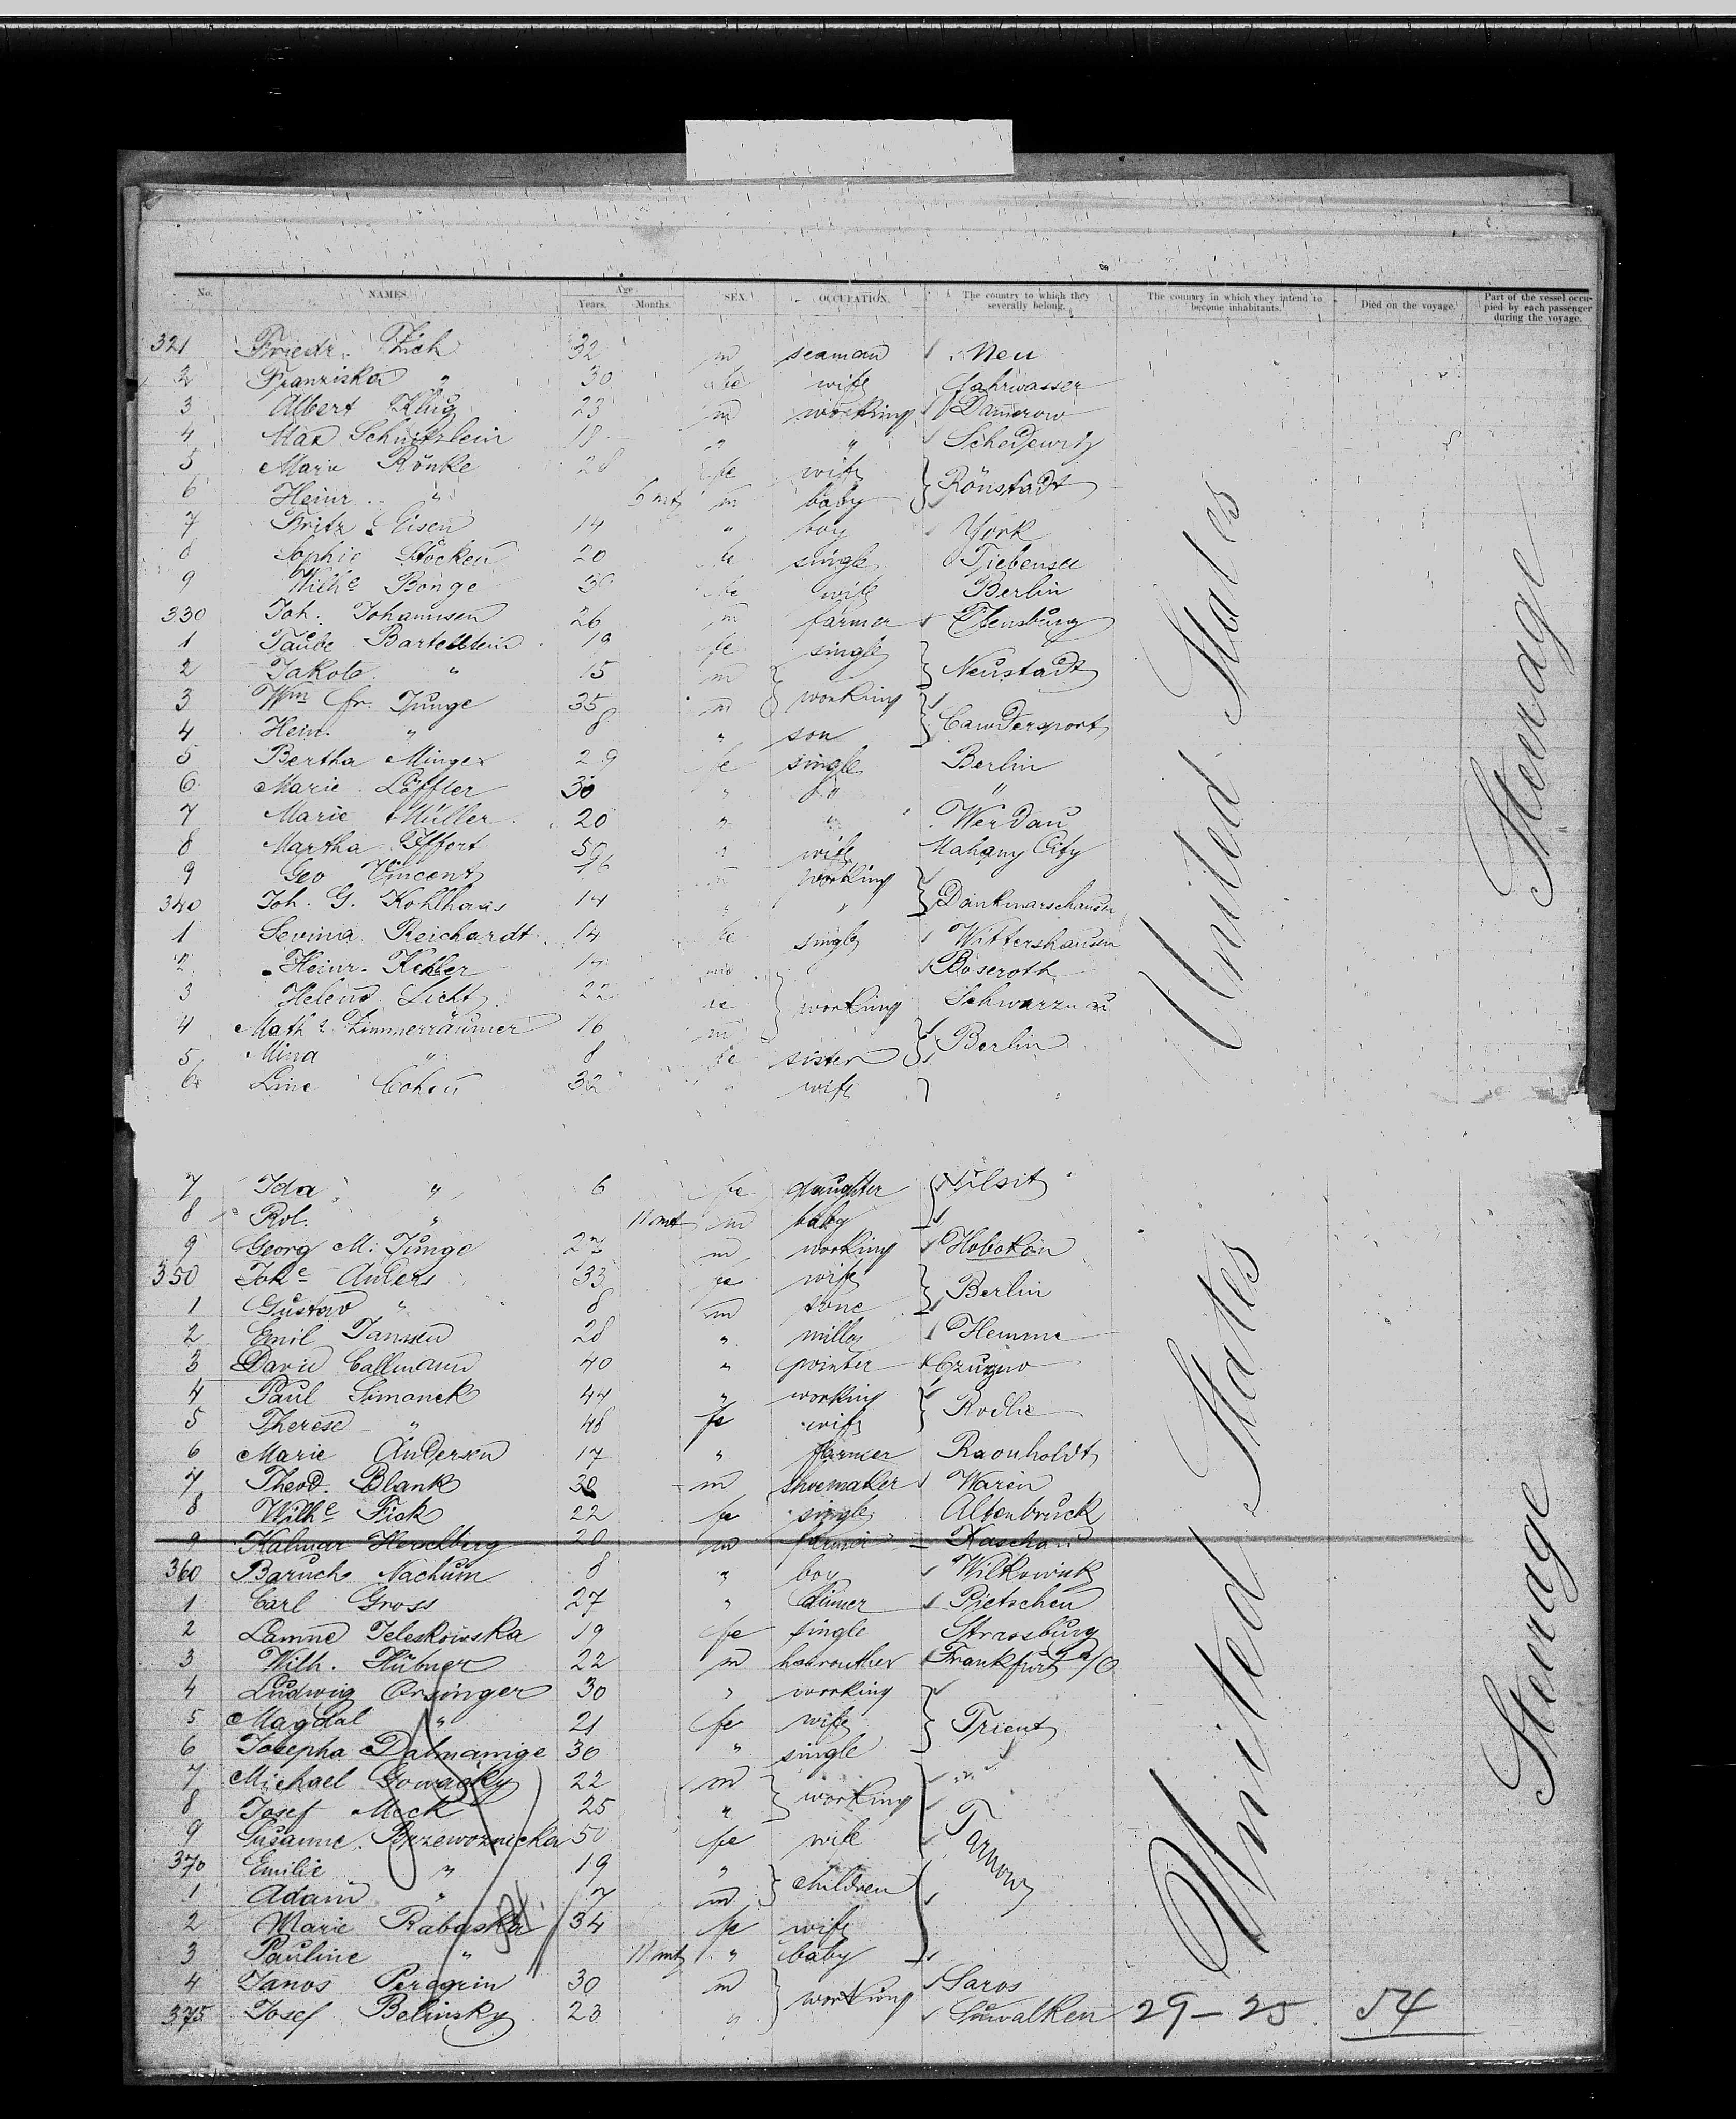 No. NAMES. Age Years. Months. SEX. OCCUPATION. The country to which they severally belong. The country in which they intend to become inhabitants. Died on the voyage. Part of the vessel occupied by each passenger during the voyage.
321 Friedr. 32 m seaman Neu
2 Franziska " 30 fe wife fahrwasser
3 Albert Klug 23 m working Damerow
4 Max Schnitzlein 18 " " Schedewitz
5 Marie Rönke 28 fe wife } Rönstadt
6 Heinr. " 6 mt m baby
7 Fritz Eisen 14 " boy York
8 Sophie Stöcken 20 fe single Tiebensee
9 Wilhe Bonge 30 fe wife Berlin
330 Joh. Johannsen 26 m farmer Flensburg
1 Taube Bartelstein 19 fe single } Neustadt
2 Jakob " 15 m } working
3 Wm fr. Junge 35 m } Cawdersport
4 Hein. " 8 " son
5 Bertha Minger 29 fe single Berlin
6 Marie Löffler 30 " " "
7 Marie Müller 20 " " Werdau
8 Martha Iffert 50 " wife Mahany City
9 Geo Vincent 46 m working } Dankmarschausen
340 Joh. G. Kohlhaas 14 " "
1 Sevina Reichardt 14 fe single Wittershausen
2 Heinr. Kehler 17 m Boseroth
3 Helene Licht 22 fe } working Schwarznau
4 Mathe Zimmerräumer 16 m } Berlin
5 Mina " 8 fe sister
6 Line Cohen 32 " wife }
7 Ida " 6 fe daughter Tilsit
8 Rol. " 11 mt m baby
9 Georg M. Junge 27 m working Hoboken
350 Johe Anders 33 fe wife } Berlin
1 Gustav " 8 m sone
2 Emil Janssen 28 " miller Hemme
3 David Callmann 40 " pointer
4 Paul Simanek 47 " working } Rodlie
5 Therese " 48 fe wife
6 Marie Andersen 17 " farmer Raonholdt
7 Theod. Blank 30 m shoemaker Waren
8 Wilhe Fick 22 fe single Altenbruck
9 Kalmar Herschberg 20 m farmer Kaschau
360 Baruch Nachum 8 " boy Wilkowisk
1 Carl Gross 27 " Pietschen
2 Lamne Teleskowska 19 fe single Strassburg
3 Wilh. Hübner 22 m Frankfurt a/O
4 Ludwig Orsinger 30 " working } Trient
5 Magdal " 21 fe wife
6 Josepha Dalmanige 30 " single
7 Michael Gowacky 22 m } working "
8 Josef Mock 25 " Tarnow
9 Susanne Brzewoznicka 50 fe wife
370 Emilie " 19 " } children
1 Adam " 7 m
2 Marie Rabaska 34 fe wife
3 Pauline " 11 mt " baby
4 Janos Peregrin 30 m } working Saros
375 Josef Belinsky 23 " Suwalken 29 – 25 54
United States
Steerage
United States
Steerage